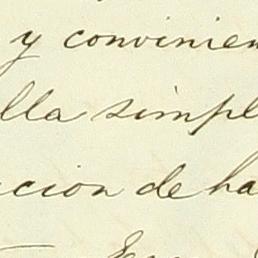 y convinien
lla simpl
cion de ha